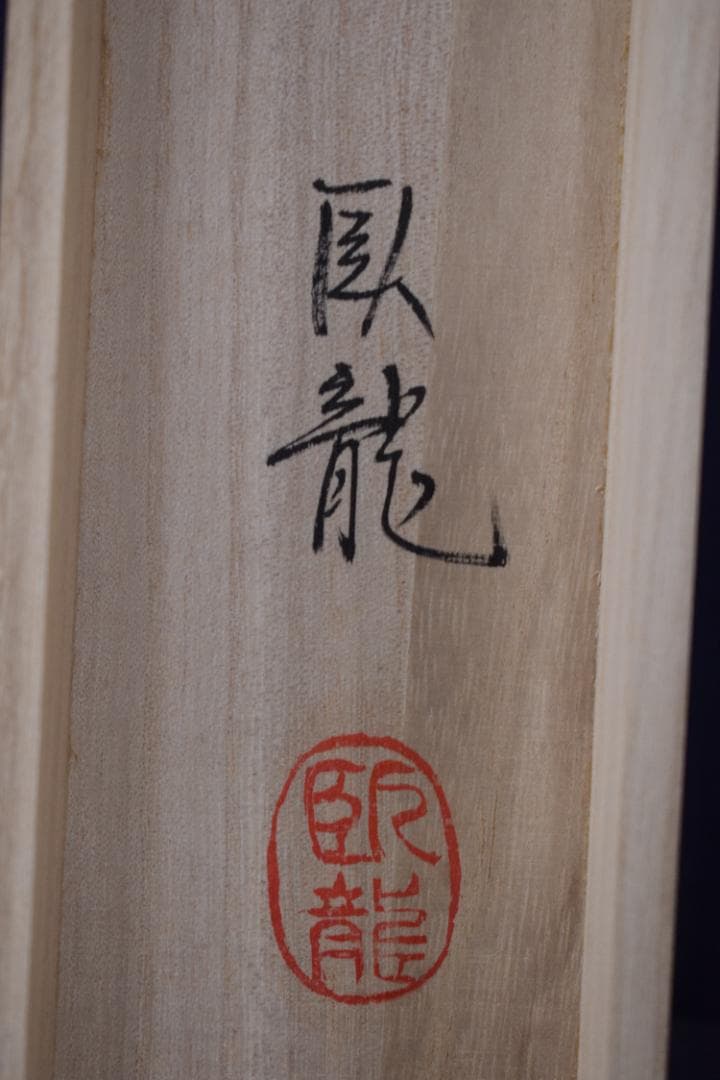 臥龍
臥龍